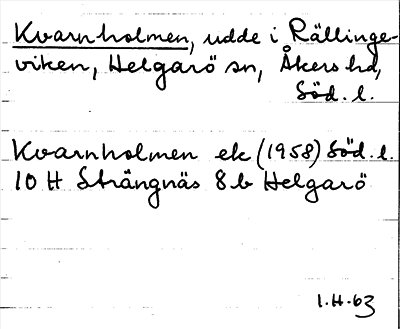 Kvarnholmen, udde i Rällinge-
viken, Helgarö sn, Åkers hd,
Söd. l.
Kvarnholmen ek (1958) Söd. l.
10 H Strängnäs 8 b Helgarö
1.H.63